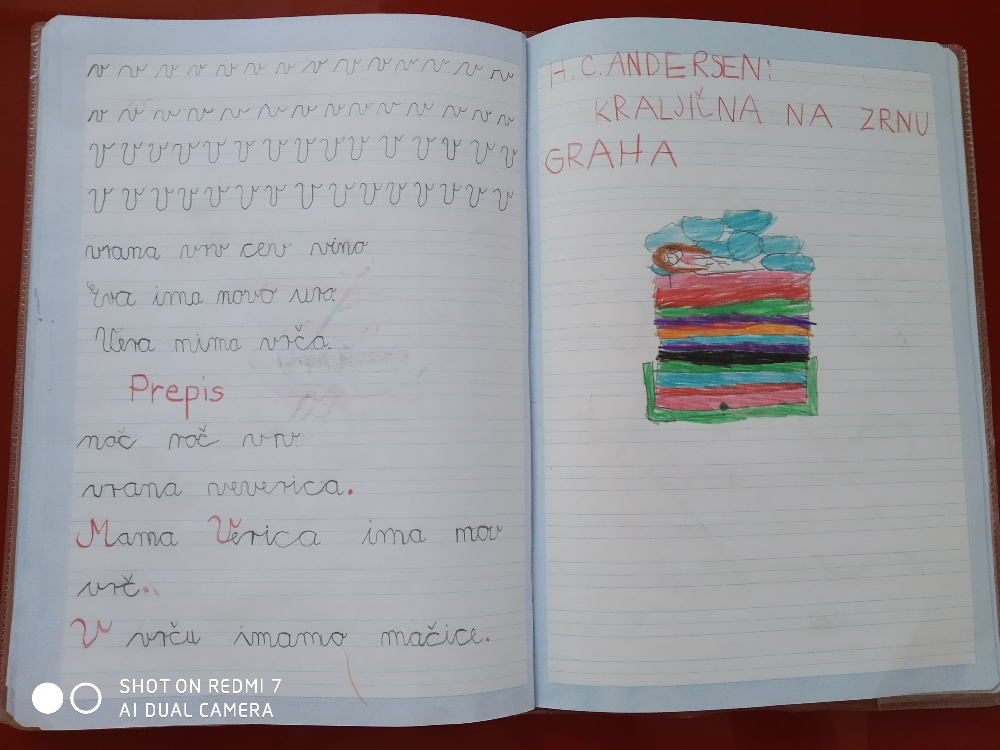 v v v v v v v v v v v v v v
v v v v v v v v v v v v v v
V V V V V V V V V V V V V V
V V V V V V V V V V V V V V
vrana vrv cev vino
Eva ima novo uro.
Vera nima vrča.
Prepis
noč roč vrv
vrana veverica.
Mama Verica ima nov
vrč.
V vrču imamo mačice.
H. C. ANDERSEN:
KRALJIČNA NA ZRNU
GRAHA
SHOT ON REDMI 7
AI DUAL CAMERA